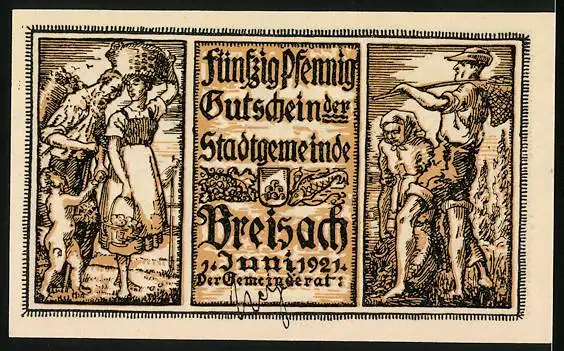 Fünfzig Pfennig
Gutschein der
Stadtgemeinde
Breisach
1. Juni 1921.
Der Gemeinderat: